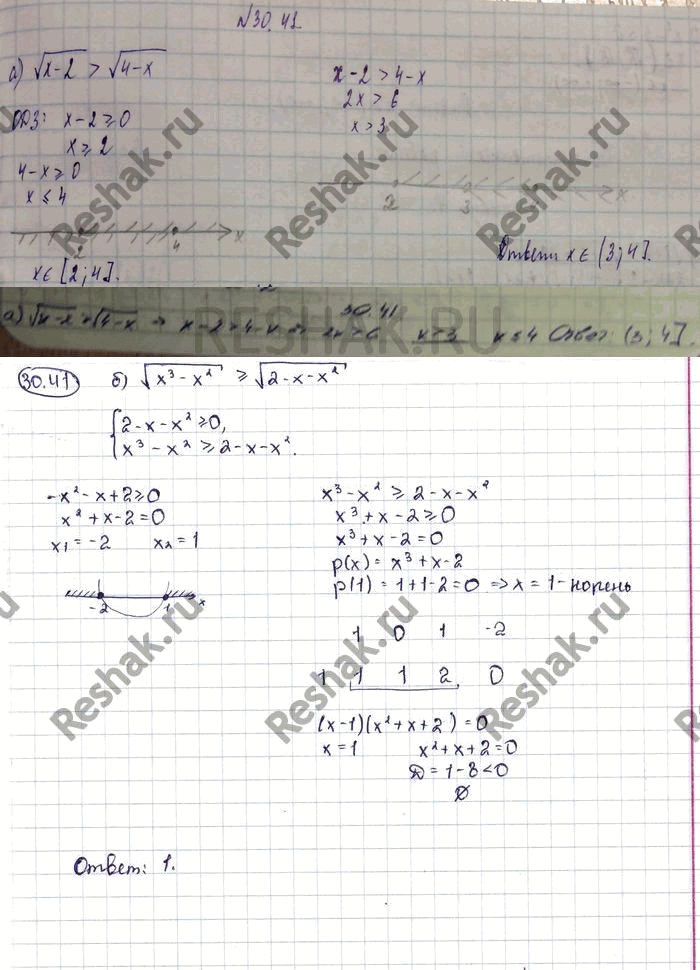 №30.41
а) √x-2 > √4-x
ОДЗ: x-2≥0
x≥2
4-x≥0
x≤4
2 4 x
x∈[2;4].
x-2>4-x
2x>6
x>3
2 3 x
Ответ: x∈(3;4].
30.41
а) √x-2 > √4-x ⇒ x-2>4-x ⇒ 2x>6 x>3 x≤4 Ответ: (3;4].
30.41 б) √x³-x² ≥ √2-x-x²
{2-x-x²≥0,
x³-x²≥2-x-x².
-x²-x+2≥0
x²+x-2=0
x₁=-2 x₂=1
-2 1 x
x³-x²≥2-x-x²
x³+x-2≥0
x³+x-2=0
p(x)=x³+x-2
p(1)=1+1-2=0 ⇒x=1-корень
1 0 1 -2
1 1 1 2 0
(x-1)(x²+x+2)=0
x=1 x²+x+2=0
D=1-8<0
∅
Ответ: 1.
Reshak.ru
Reshak.ru
RESHAK.RU
Reshak.ru
Reshak.ru